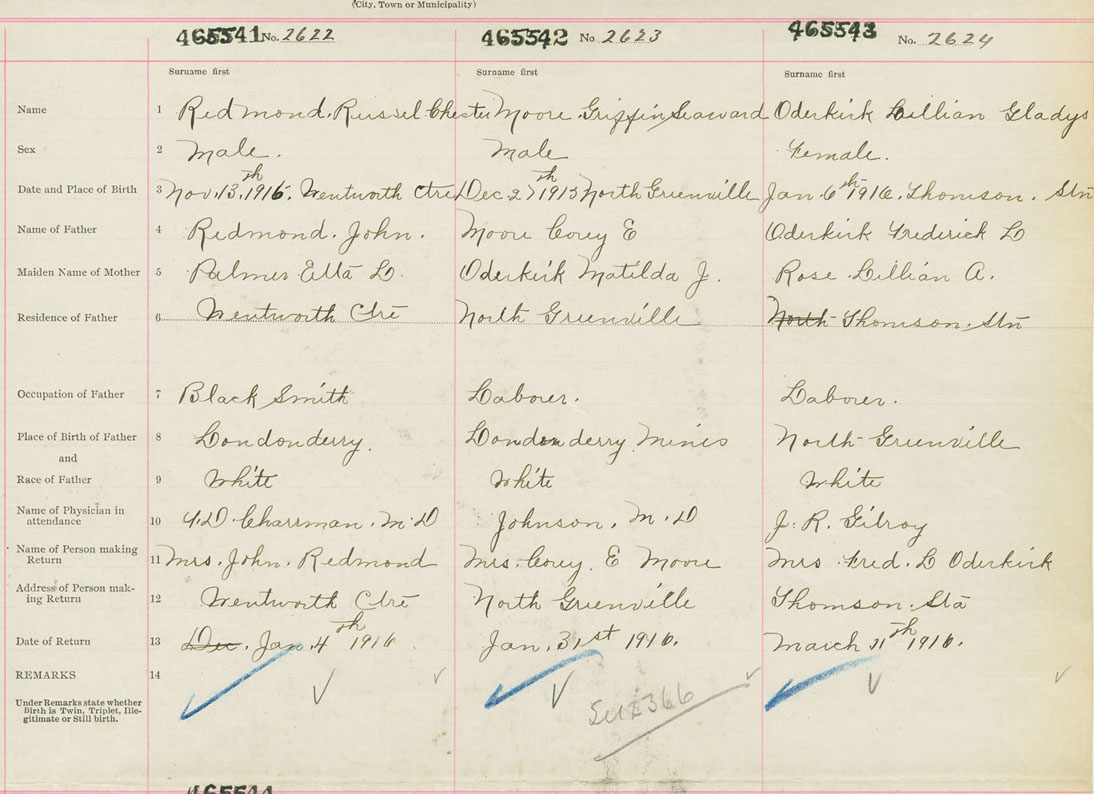 (City, Town or Municipality)
465541 No. 2622 465542 No 2623 465543 No. 2624
Surname first Surname first Surname first
Name 1 Redmond. Russel Chester Moore Griffin Seaward Oderkirk Lillian Gladys
Sex 2 Male. Male Female.
Date and Place of Birth 3 Nov. 13th 1916. Wentworth Ctre Dec. 27th 1915 North Greenville Jan 6th 1916. Thomson. Stn
Name of Father 4 Redmond. John. Moore Corey E Oderkirk Frederick L
Maiden Name of Mother 5 Palmer Etta L. Oderkirk Matilda J. Rose Lillian A.
Residence of Father 6 Wentworth Ctre North Greenville North Thomson. Stn
Occupation of Father 7 Black Smith Laborer. Laborer.
Place of Birth of Father 8 Londonderry. Londonderry Mines North Greenville
and
Race of Father 9 White White White
Name of Physician in
attendance 10 Charman. M.D Johnson. M.D J. R. Gilroy
Name of Person making
Return 11 Mrs. John. Redmond Mrs. Corey. E Moore Mrs Fred. L Oderkirk
Address of Person mak-
ing Return 12 Wentworth Ctre North Greenville Thomson. Sta
Date of Return 13 Dec. Jan. 4th 1916 Jan. 31st 1916. March 1916.
REMARKS 14
Under Remarks state whether
Birth is Twin, Triplet, Ille-
gitimate or Still birth.
366
465544